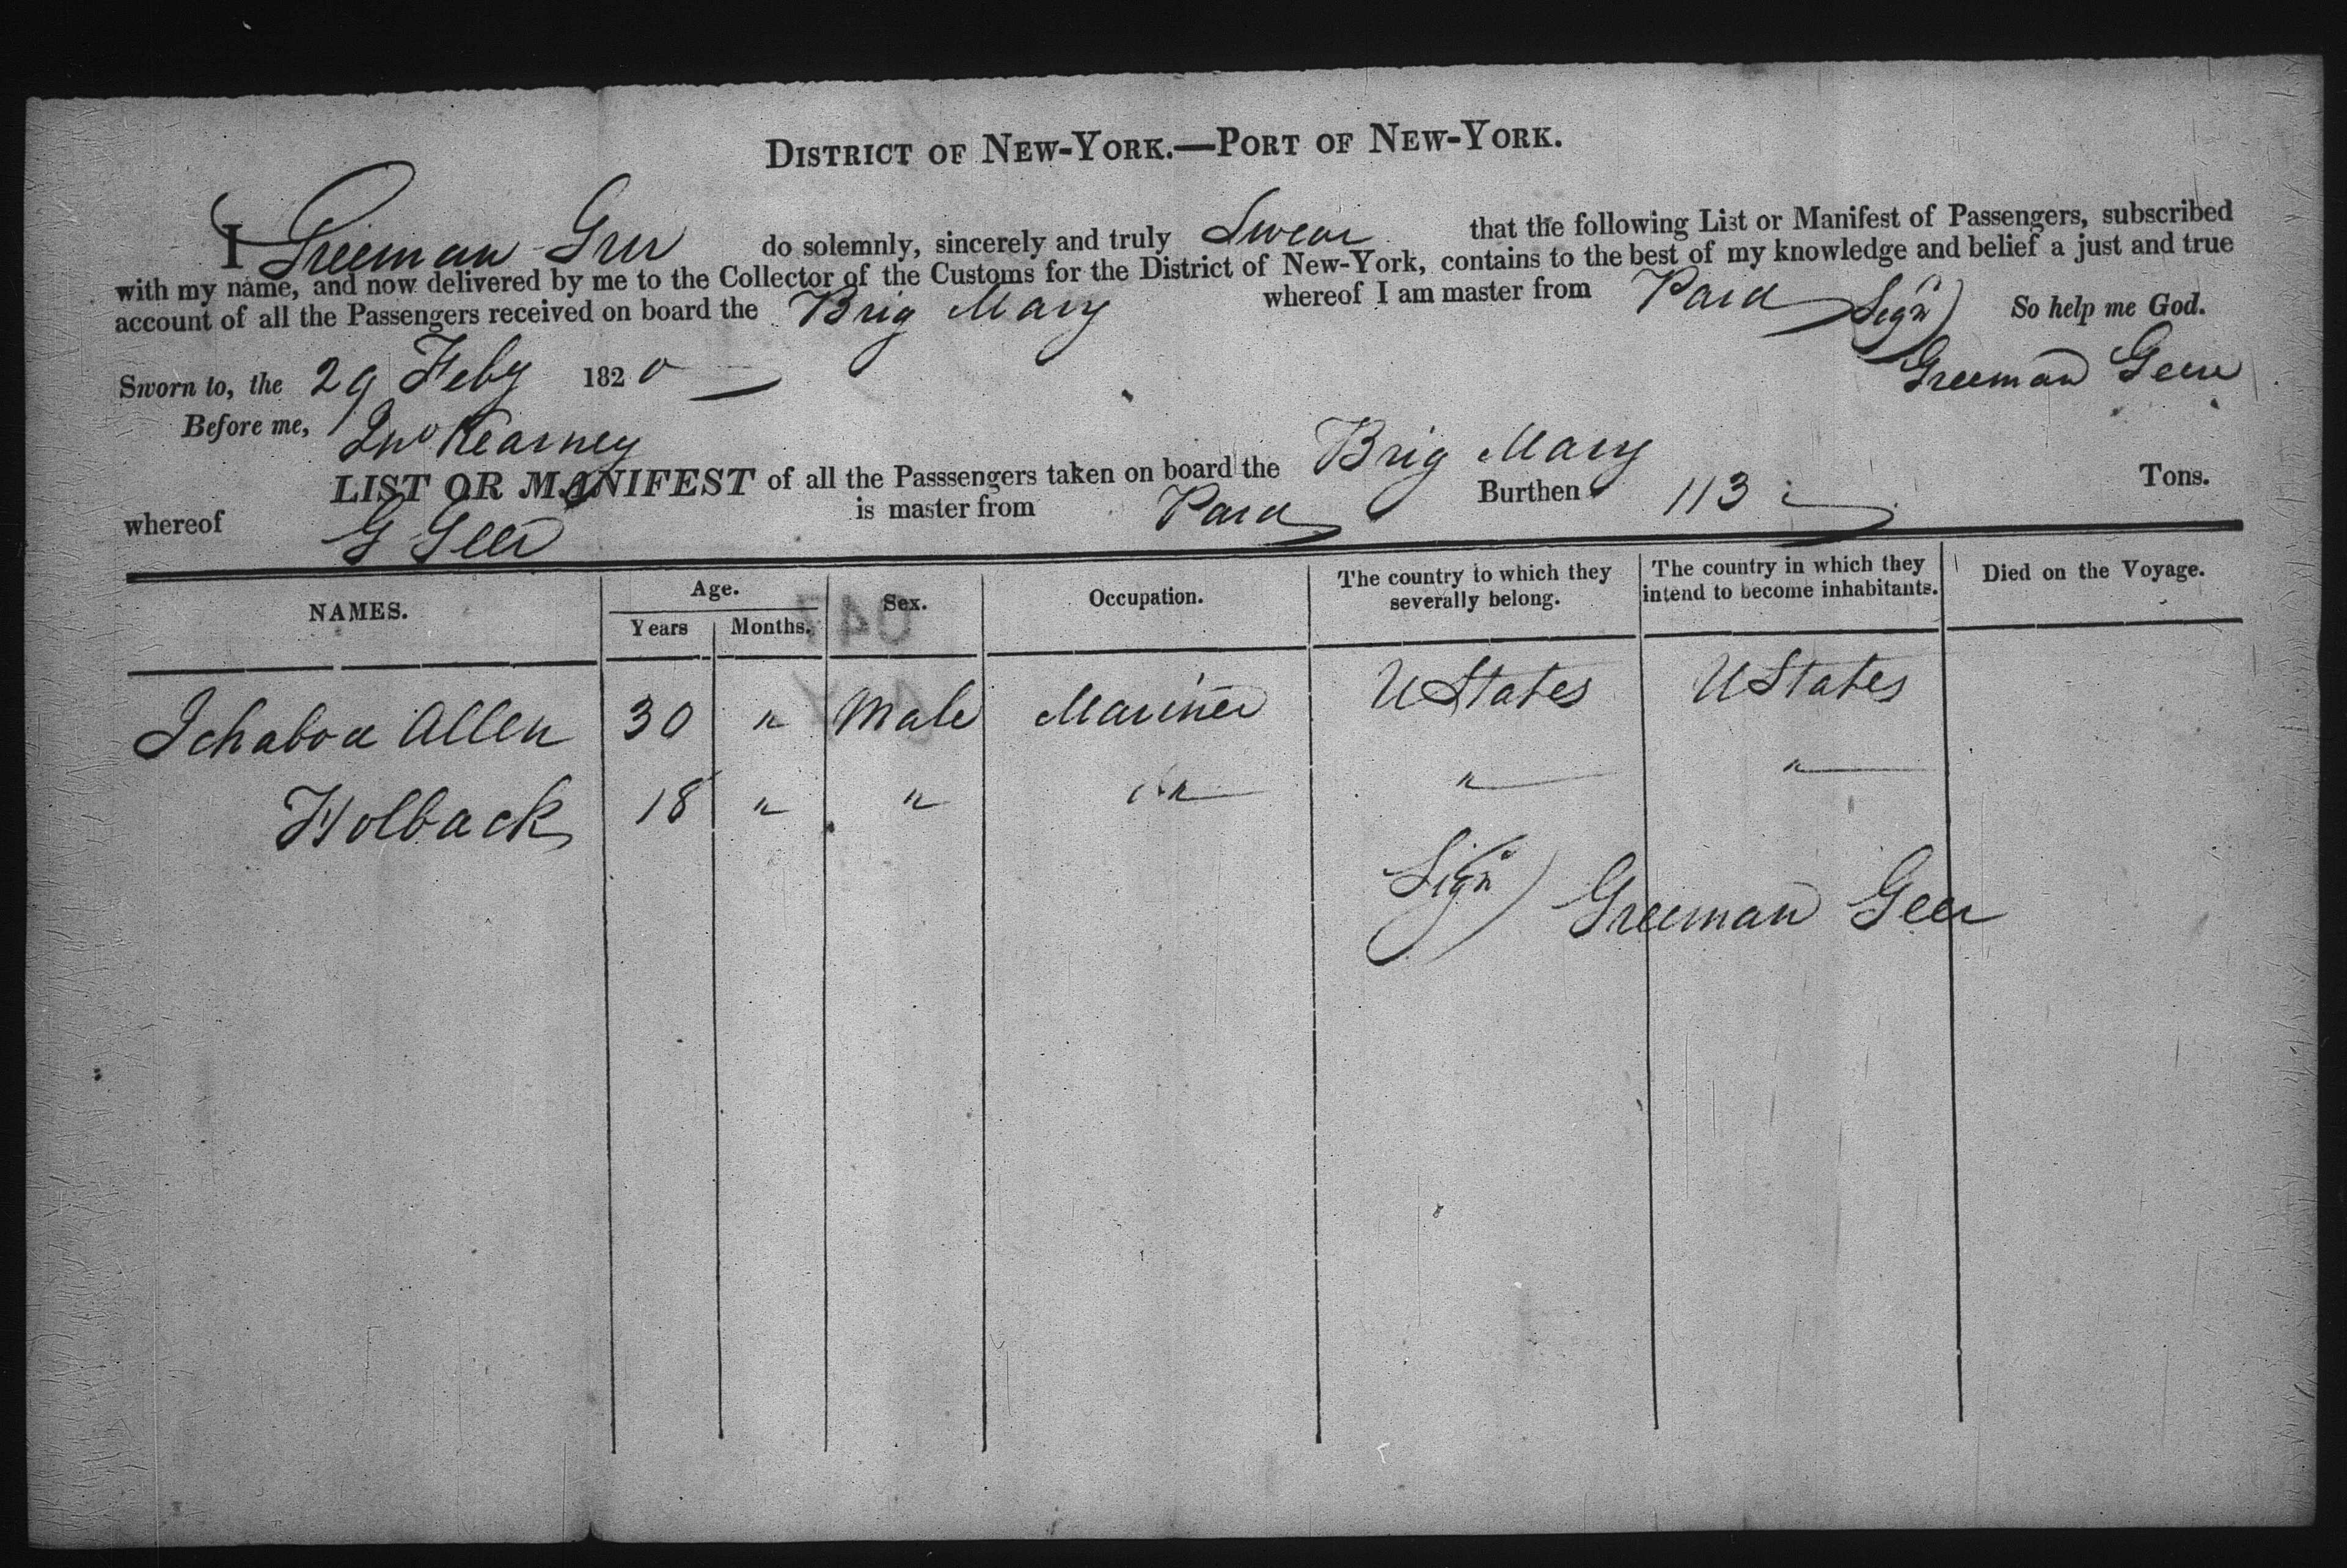 DISTRICT OF NEW-YORK.—PORT OF NEW-YORK.
I Greeman Geer do solemnly, sincerely and truly Swear that the following List or Manifest of Passengers, subscribed
with my name, and now delivered by me to the Collector of the Customs for the District of New-York, contains to the best of my knowledge and belief a just and true
account of all the Passengers received on board the Brig Mary whereof I am master from Para So help me God.
Sign) Greeman Geer
Sworn to, the 29 Feby 1820
Before me, Jno Kearney
LIST OR MANIFEST of all the Passsengers taken on board the Brig Mary
whereof G Geer is master from Para Burthen 113 Tons.
NAMES. Age. Years Months. Sex. Occupation. The country to which they severally belong. The country in which they intend to become inhabitants. Died on the Voyage.
Ichabod Allen 30 " Male Mariner U States U States
Holback 18 " " " " "
Sign) Greeman Geer